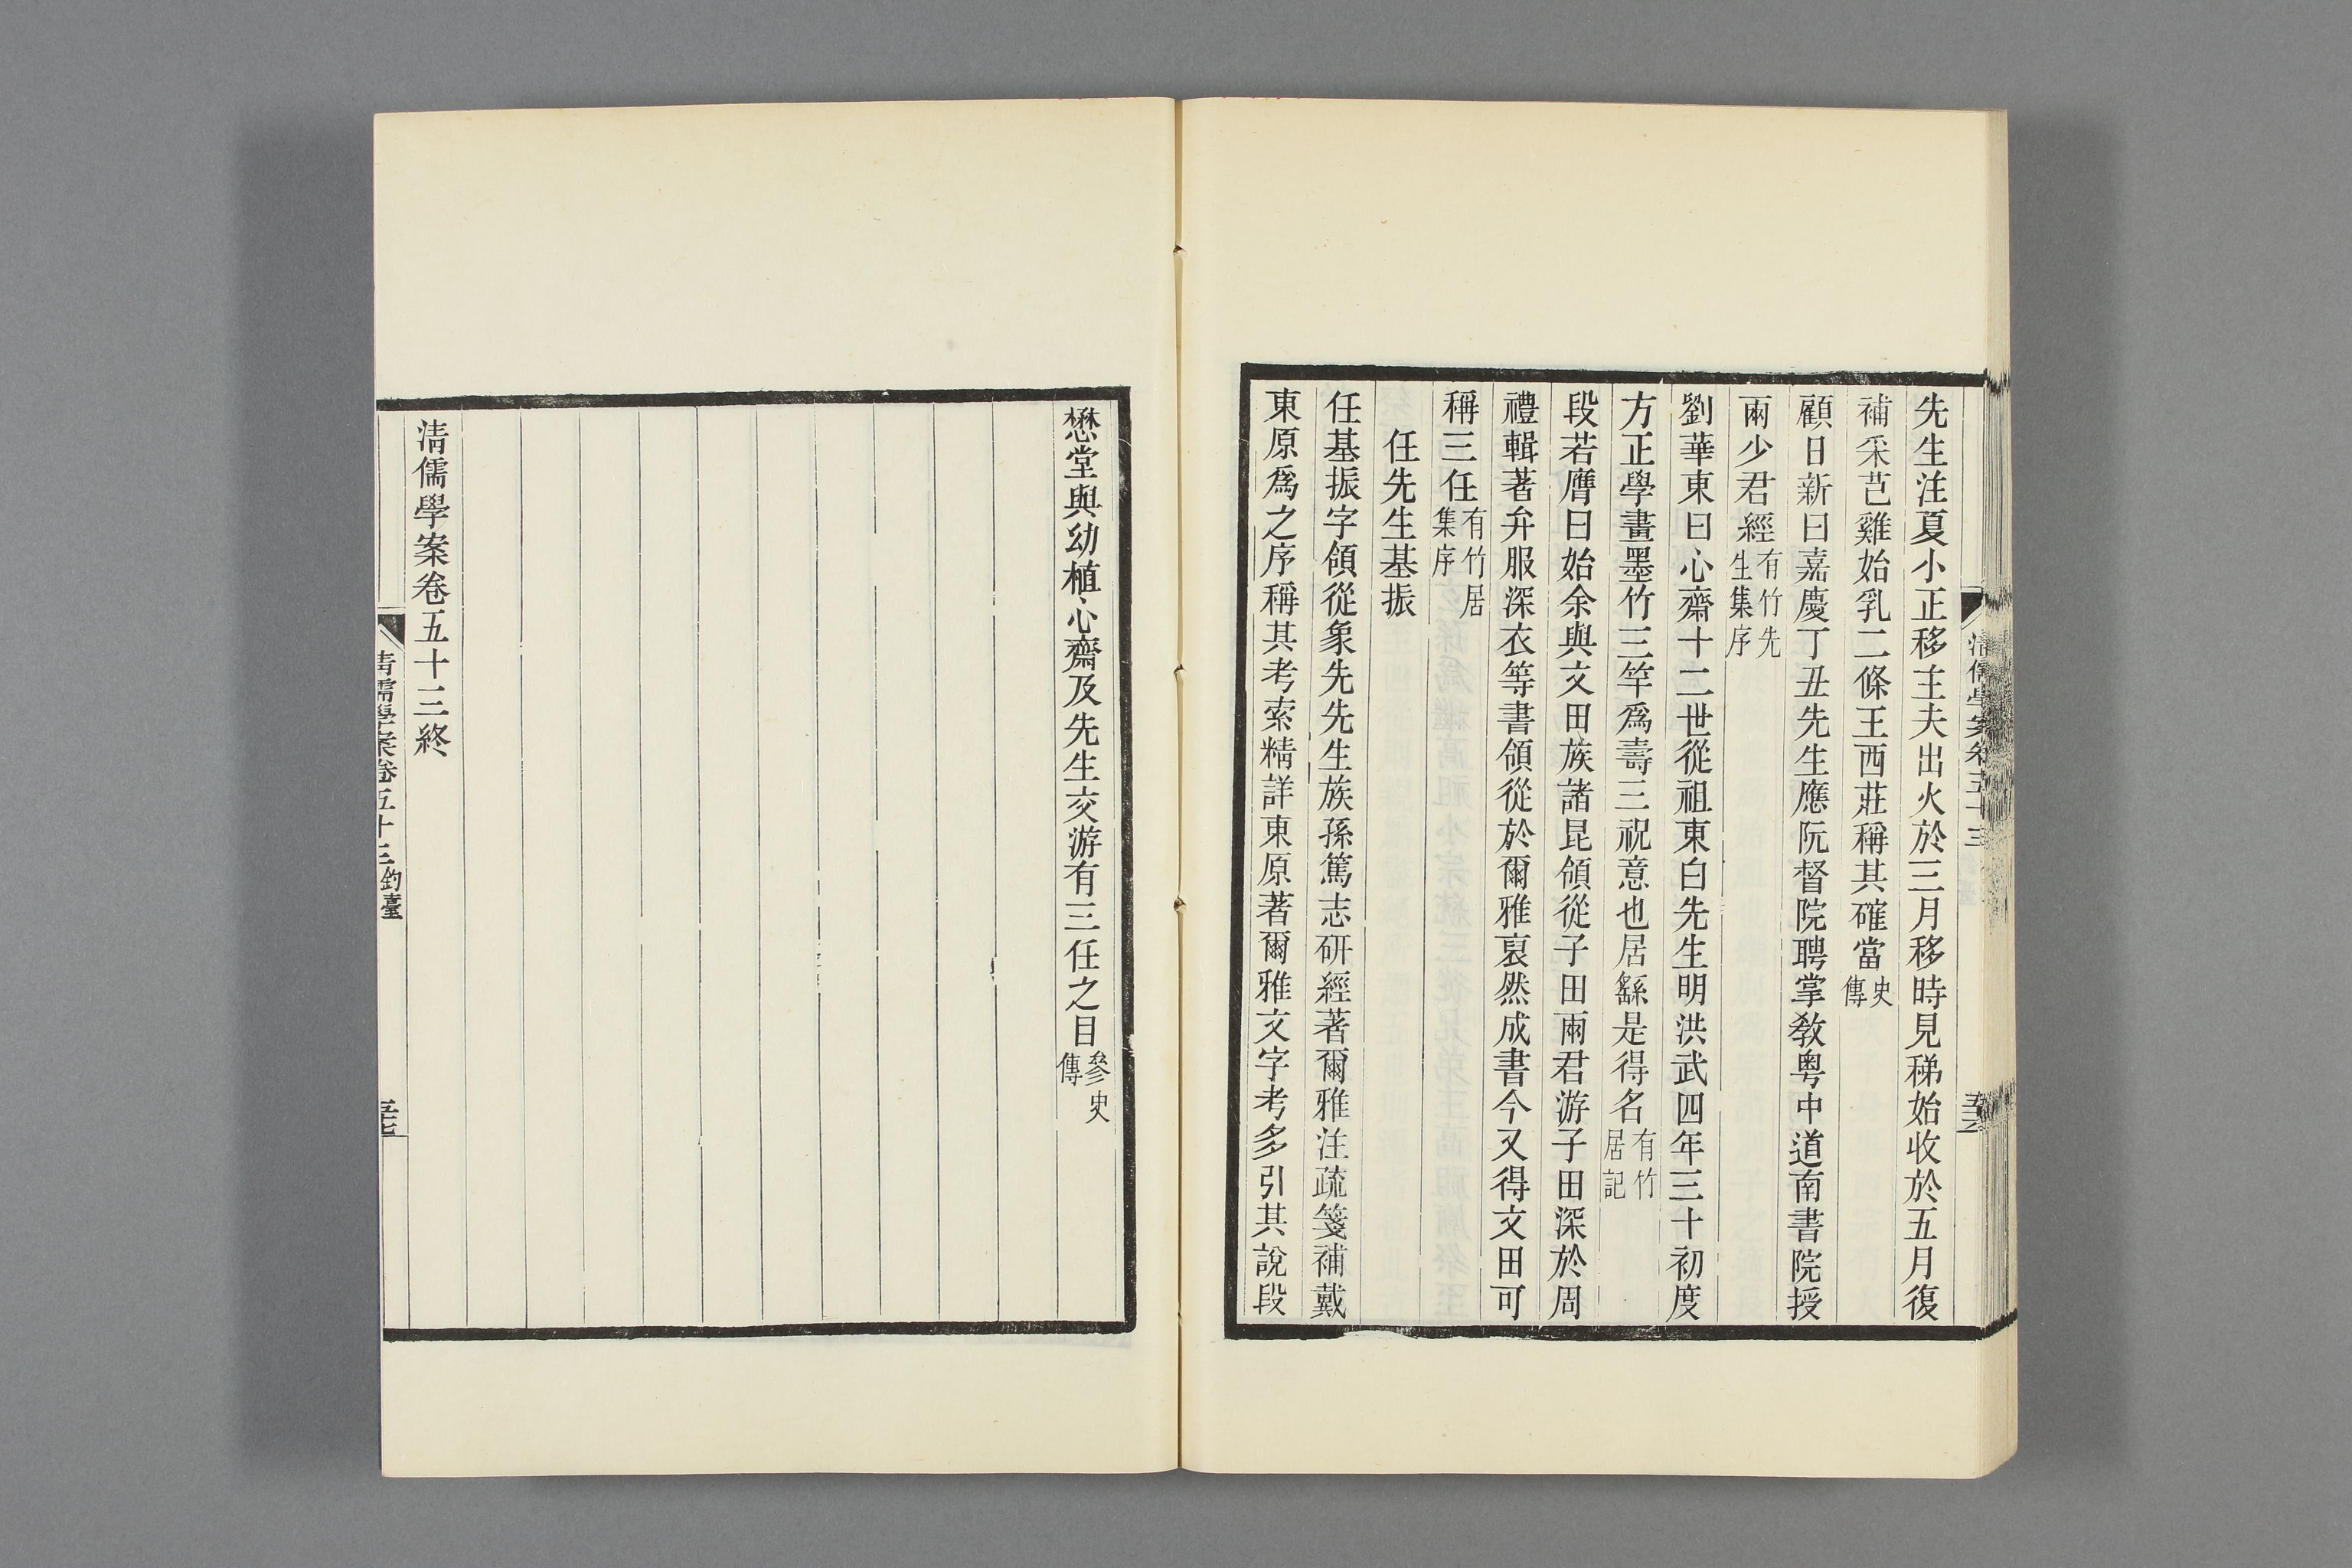 先生注夏小正移主夫出火於三月移時見稊始收於五月復
補采芑雞始乳二條王西莊稱其確當史傳
顧日新曰嘉慶丁丑先生應阮督院聘掌敎粵中道南書院授
兩少君經有竹先生集序
劉華東曰心齋十二世從祖東白先生明洪武四年三十初度
方正學畫墨竹三竿爲壽三祝意也居繇是得名有竹居記
段若膺曰始余與文田族諸昆領從子田兩君游子田深於周
禮輯著弁服深衣等書領從於爾雅裒然成書今又得文田可
稱三任有竹居集序
任先生基振
任基振字領從象先先生族孫篤志研經著爾雅注疏箋補戴
東原爲之序稱其考索精詳東原著爾雅文字考多引其說段
懋堂與幼植心齋及先生交游有三任之目參史傳
清儒學案卷五十三終
清儒學案卷五十三 釣臺